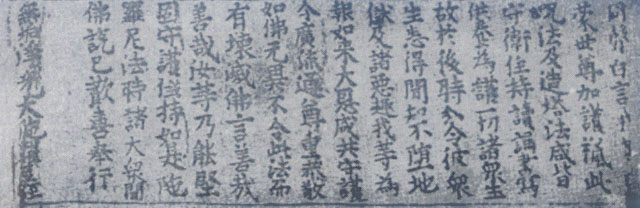 白言
蒙世尊加護授此
呪法及造塔法咸皆
守衛住持讀誦書寫
供養為護一切諸衆生
故於後時分令彼衆
生悉得聞知不墮地
獄及諸惡趣我等為
報如来大恩咸共守護
令廣流通尊重恭敬
如佛无異不令此法而
有壞滅佛言善哉
善哉汝等乃能堅
固守護住持如是陁
羅尼法時諸大衆聞
佛說已歡喜奉行
無垢淨光大陁羅尼經